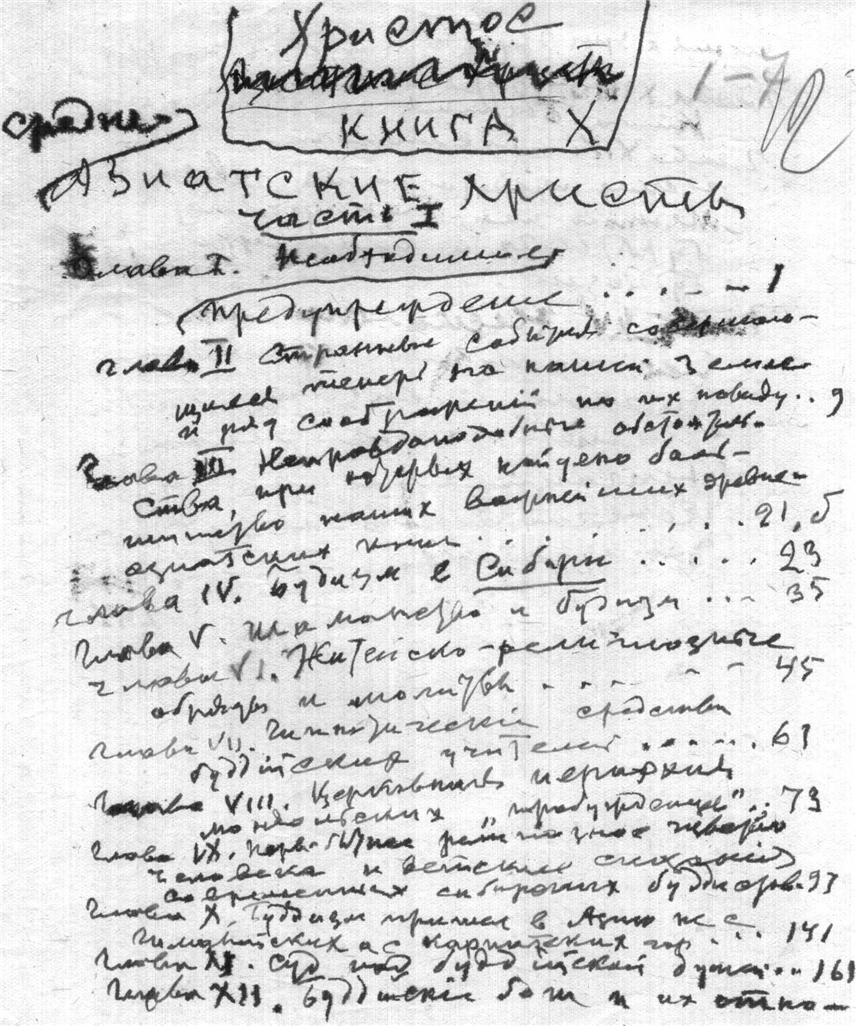 Христос
КНИГА X
1-7
средне-
АЗИАТСКИЕ Христы
часть I
Глава I. Необходимое
предупреждение ..... 1
глава II Странные события совершаю-
щиеся теперь на нашей Земле
и ряд соображений по их поводу.. 9
Глава III Неправдоподобные обстоятель-
ства, при которых найдено боль-
шинство наших важнейших древне-
азиатских книг ....... 21,5
Глава IV. Будизм в Сибири ..... 23
Глава V. Шаманство и будизм ... 35
Глава VI. Житейско-религиозные
обряды и молитвы ..... 45
Глава VII. Гипнотические средства
буддийских учителей ...... 61
Глава VIII. Церковная иерархия
монгольских "пробужденцев".. 73
Глава IX. религиозное
человека и
современных сибирских буддистов. 93
Глава X. Буддизм пришел в Азию не с
гималайских а с карпатских гор ... 141
Глава XI. Суд над буддийской душой.. 161
Глава XII. Буддийские боги и их отно-